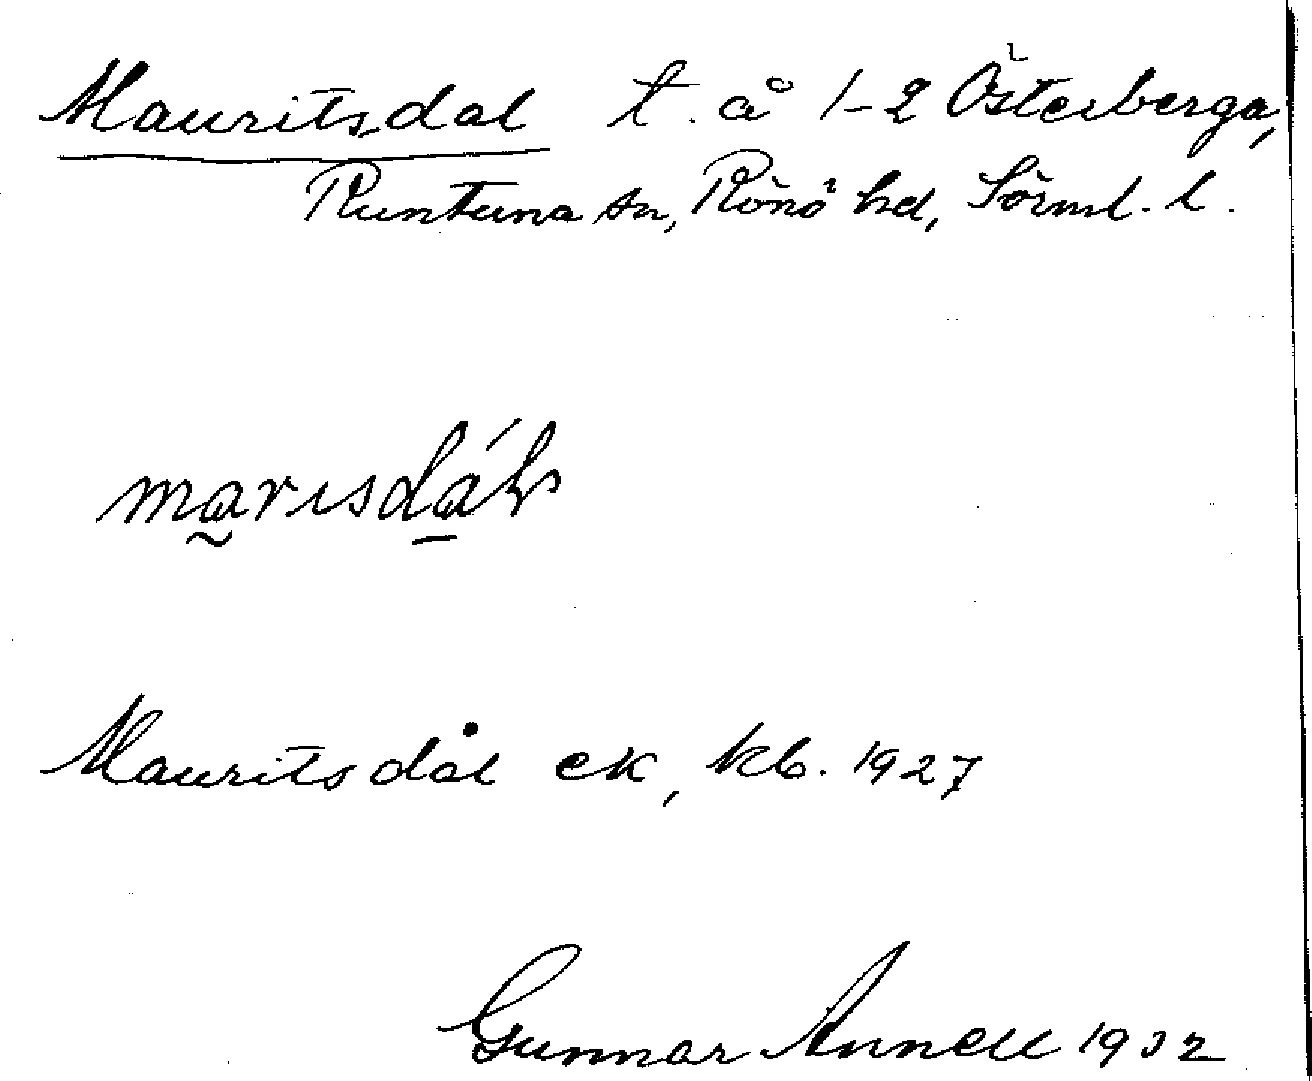 Mauritsdal t. å 1-2 Österberga,
Runtuna sn, Rönö hd, Sörml. l.
marisdáls
Mauritsdål ek, kb. 1927
Gunnar Annell 1932